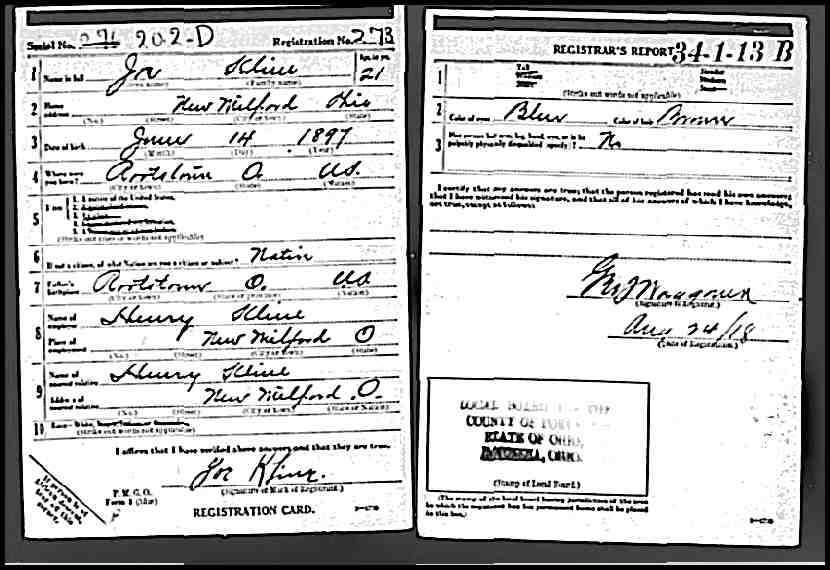 Serial No. 271 202-D Registration No. 273
1 Name in full Joe Kline Age, in yrs. 21
(Given name) (Family name)
2 Home address New Milford Ohio
(No.) (Street) (City or town) (State)
3 Date of birth June 14 1897
(Month) (Day) (Year)
4 Where were you born? Rootstown O. U.S.
(City or town) (State) (Nation)
5 I am 1. A native of the United States.
(Strike out lines or words not applicable)
6 If not a citizen, of what Nation are you a citizen or subject? Native
7 Father's birthplace Rootstown O. US
(City or town) (State or province) (Nation)
8 Name of employer Henry Kline
Place of employment New Milford O
(No.) (Street) (City or town) (State)
9 Name of nearest relative Henry Kline
Address of nearest relative New Milford O.
(No.) (Street) (City or town) (State or Nation)
10 Race—White,
(Strike out words not applicable)
I affirm that I have verified above answers and that they are true.
Joe Kline.
(Signature or Mark of Registrant.)
P. M. G. O.
Form 1
REGISTRATION CARD.
If person is of African descent, tear off this corner.
REGISTRAR'S REPORT 34-1-13 B
1 Tall Medium Short Slender Medium Stout
(Strike out words not applicable)
2 Color of eyes Blue Color of hair Brown
3 Has person lost arm, leg, hand, eye, or is he palpably physically disqualified (specify)? No
I certify that my answers are true; that the person registered has read his own answers;
that I have witnessed his signature, and that all of his answers of which I have knowledge,
are true, except as follows:
(Signature of Registrar.)
Aug 24/18
(Date of Registration.)
LOCAL BOARD FOR THE
COUNTY OF
STATE OF OHIO,
RAVENNA, OHIO.
(Stamp of Local Board.)
(The stamp of the local board having jurisdiction of the area
in which the registrant has his permanent home shall be placed
in this box.)